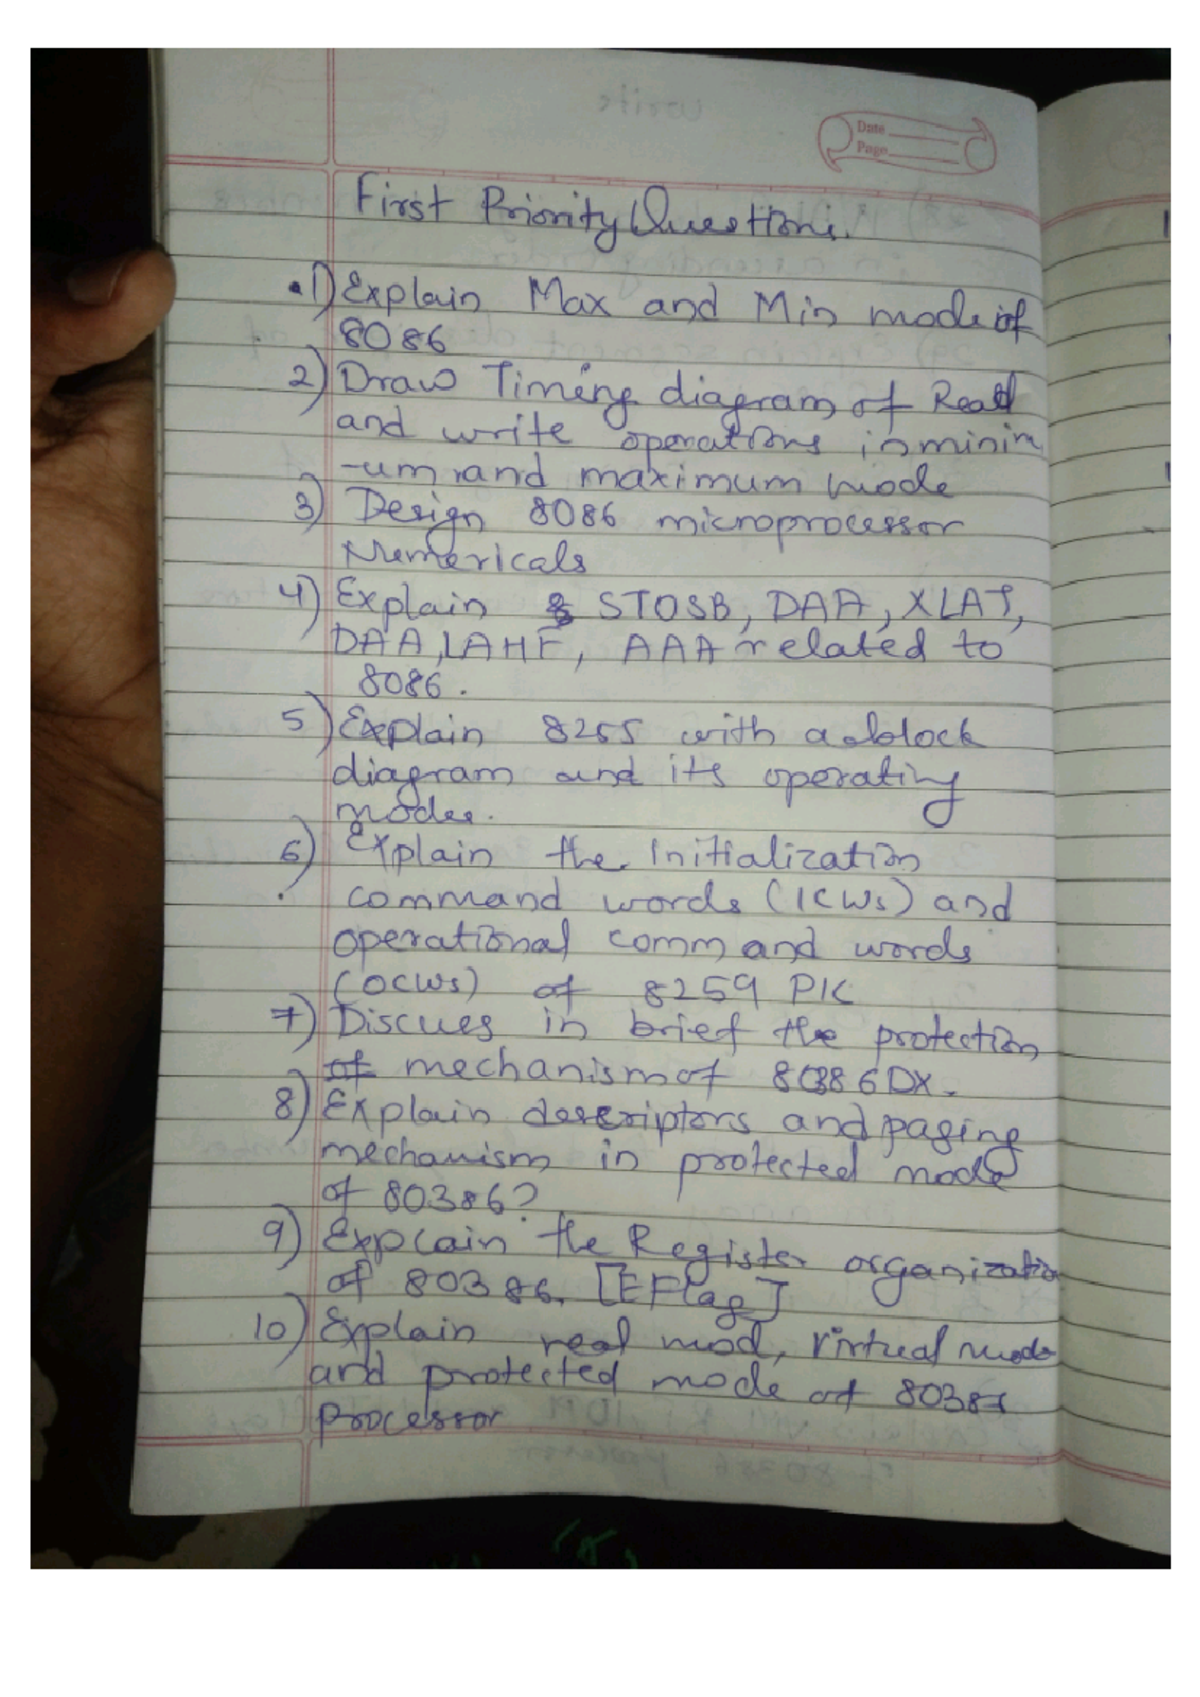 Date
Page
First Priority Questions.
1) Explain Max and Min mode of
8086
2) Draw Timing diagram of Read
and write operations in minim
-um and maximum mode
3) Design 8086 microprocessor
Numericals
4) Explain STOSB, DAA, XLAT,
DAA, LAHF, AAA related to
8086.
5) Explain 8255 with a block
diagram and its operating
modes.
6) Explain the Initialization
command words (ICWs) and
operational command words
(OCWs) of 8259 PIC
7) Discues in brief the protection
of mechanism of 80386DX.
8) Explain descriptors and paging
mechanism in protected mode
of 80386?
9) Explain the Register organization
of 80386. [EFlag]
10) Explain real mod, Virtual mode
and protected mode of
processor